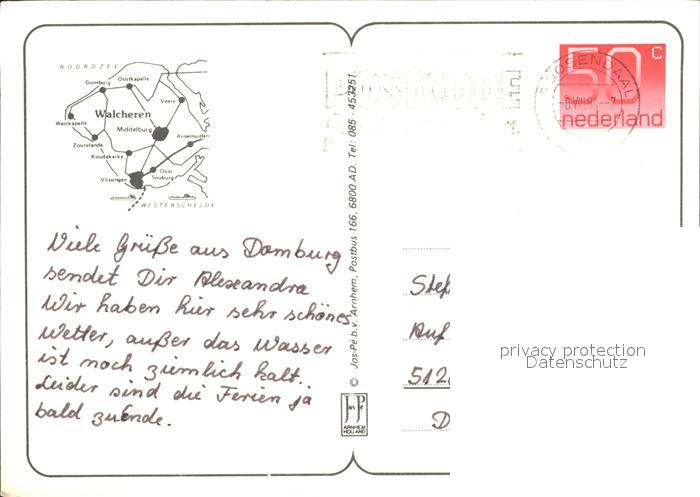 NOORDZEE
Domburg
Oostkapelle
Veere
Walcheren
Westkapelle
Middelburg
Zoutelande
Arnemuiden
Koudekerke
Oost
Souburg
Vlissingen
WESTERSCHELDE
Viele Grüße aus Domburg
sendet Dir Alexandra
Wir haben hier sehr schönes
Wetter, außer das Wasser
ist noch ziemlich kalt.
Leider sind die Ferien ja
bald zuEnde.
© Jos-Pé b.v. Arnhem, Postbus 166, 6800 AD. Tel: 085 - 453251.
Jos Pe
ARNHEM
HOLLAND
POSTCODE
ROOSENDAAL
50 C
nederland
Stef
Auf
512
D
privacy protection
Datenschutz